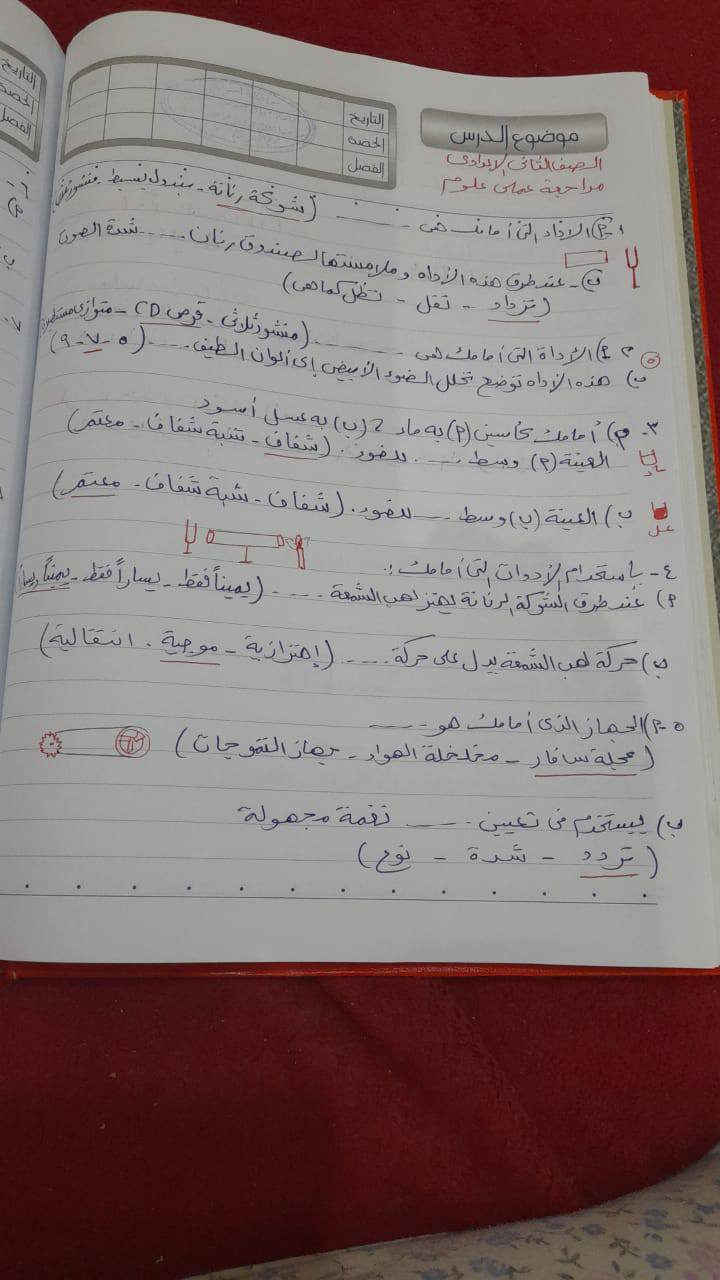 موضوع الدرس
التاريخ
الحصة
الفصل
الصف الثانى الإعدادى
مراجعة عملى علوم
١- أ) الأداه التى أمامك هى ..... (شوكة رنانة - بندول بسيط -
ب- عند طرق هذه الأداه وملامستها لصندوق رنان ..... شدة الصوت
(تزداد - تقل - تظل كما هى)
٢- أ) الأداة التى أمامك هى ..... (منشور ثلاثى - قرص CD - متوازى مستطيلات
ب) هذه الأداه توضح تحلل الضوء الأبيض إلى ألوان الطيف ..... (٥ - ٧ - ٩)
٣- أ) أمامك كأسين (أ) به ماء 2 (ب) به عسل أسود
العينة (أ) وسط ..... للضوء. (شفاف - شبة شفاف - معتم)
ماء
ب) العينة (ب) وسط ..... للضوء. (شفاف - شبة شفاف - معتم)
عسل
٤- بإستخدام الأدوات التى أمامك :
أ) عند طرق الشوكة الرنانة يهتز لهب الشمعة ..... (يميناً فقط - يساراً فقط - يميناً ويساراً
ب) حركة لهب الشمعة يدل على حركة ..... (إهتزازية - موجية - انتقالية)
٥- أ) الجهاز الذى أمامك هو .....
(عجلة سافار - مخلخلة الهواء - جهاز التموجات)
ب) يستخدم فى تعيين ..... نغمة مجهولة
(تردد - شدة - نوع)
التاريخ
الحصة
الفصل
٦-
أ)
ب)
٧-